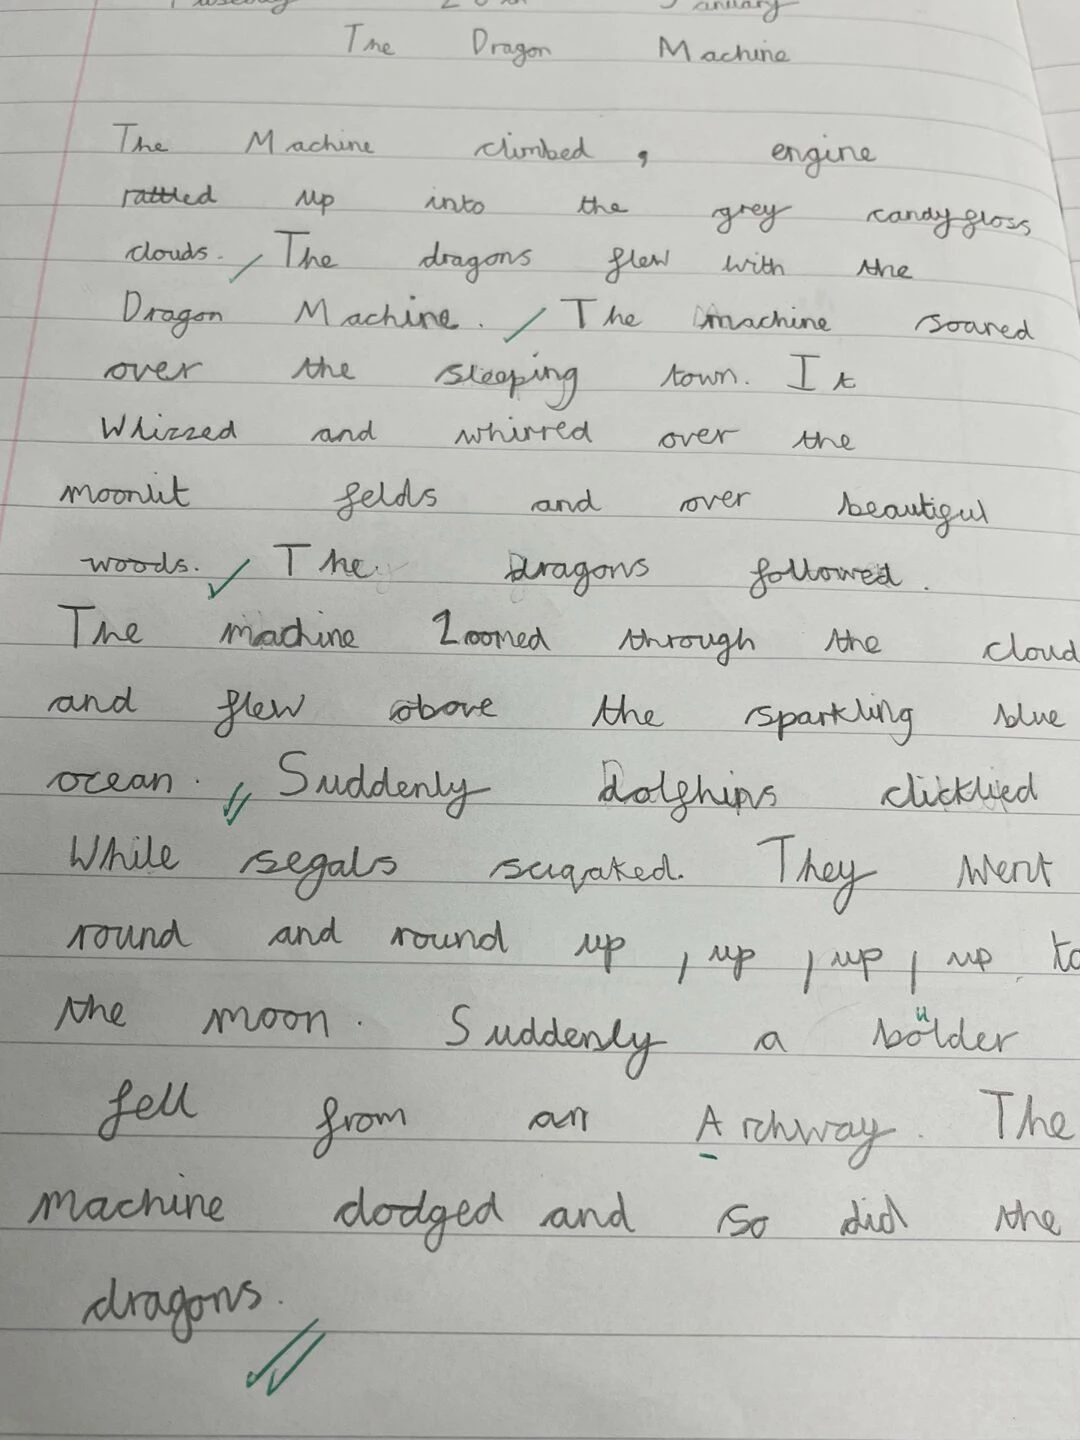 January
The Dragon Machine
The Machine climbed, engine
rattled up into the grey candyfloss
clouds. The dragons flew with the
Dragon Machine. The machine soared
over the sleeping town. It
Whizzed and whirred over the
moonlit felds and over beautiful
woods. The dragons followed.
The machine Zoomed through the cloud
and flew above the sparkling blue
ocean. Suddenly Dolphins
While segals They went
round and round up, up, up, up to
the moon. Suddenly a bolder
fell from an Archway. The
machine dodged and so did the
dragons.